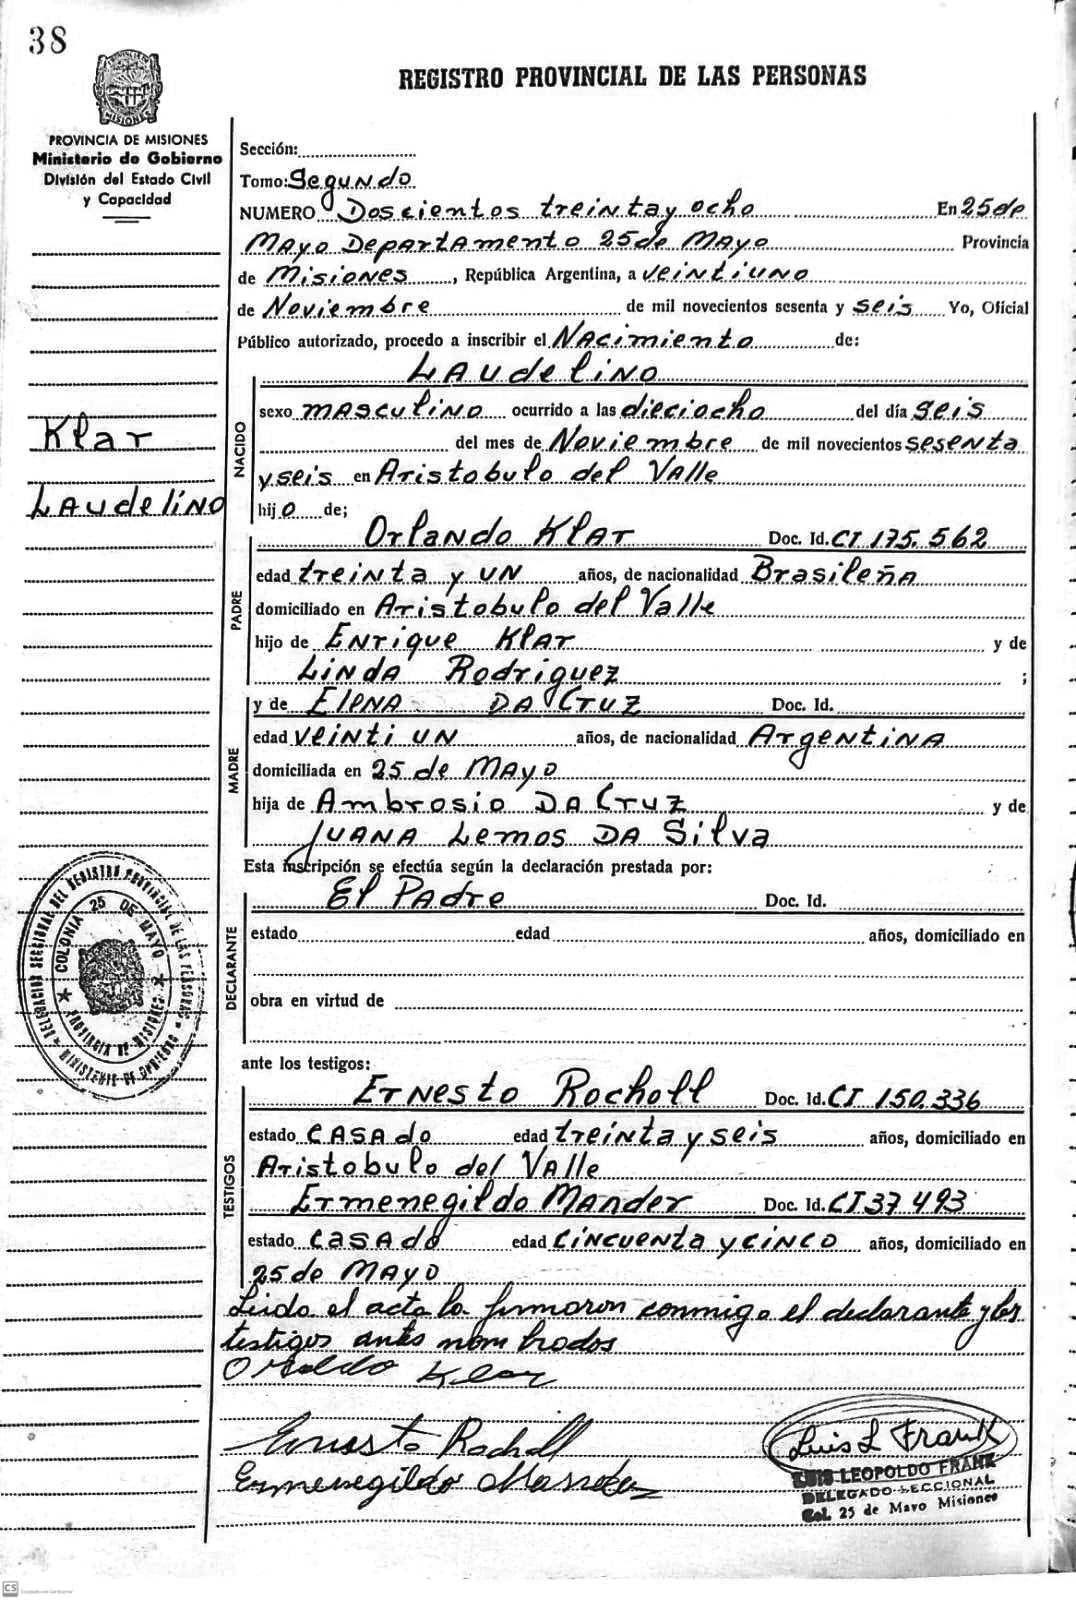 38
REGISTRO PROVINCIAL DE LAS PERSONAS
PROVINCIA DE MISIONES
Ministerio de Gobierno
División del Estado Civil
y Capacidad
Klar
Laudelino
Sección:
Tomo: Segundo
NUMERO Doscientos treinta y ocho En 25 de
Mayo Departamento 25 de Mayo Provincia
de Misiones, República Argentina, a veintiuno
de Noviembre de mil novecientos sesenta y seis Yo, Oficial
Público autorizado, procedo a inscribir el Nacimiento de:
NACIDO
Laudelino
sexo masculino ocurrido a las dieciocho del día seis
del mes de Noviembre de mil novecientos sesenta
y seis en Aristobulo del Valle
hijo de;
PADRE
Orlando Klar Doc. Id. CI 175.562
edad treinta y un años, de nacionalidad Brasileña
domiciliado en Aristobulo del Valle
hijo de Enrique Klar y de
Linda Rodriguez ;
MADRE
y de Elena Da Cruz Doc. Id.
edad veinti un años, de nacionalidad Argentina
domiciliada en 25 de Mayo
hija de Ambrosio Da Cruz y de
Juana Lemos Da Silva
Esta inscripción se efectúa según la declaración prestada por:
DECLARANTE
El Padre Doc. Id.
estado edad años, domiciliado en
obra en virtud de
DELEGACION SECCIONAL DEL REGISTRO PROVINCIAL DE LAS PERSONAS
MINISTERIO DE GOBIERNO
COLONIA 25 DE MAYO
PROVINCIA DE MISIONES
ante los testigos:
TESTIGOS
Ernesto Rocholl Doc. Id. CI 150.336
estado casado edad treinta y seis años, domiciliado en
Aristobulo del Valle
Ermenegildo Mander Doc. Id. CI 37 493
estado casado edad cincuenta y cinco años, domiciliado en
25 de Mayo
Leida el acta la firmaron conmigo el declarante y los
testigos antes nombrados
Klar
Ernesto Rocholl
Ermenegildo
Luis L Frank
LUIS LEOPOLDO FRANK
DELEGADO SECCIONAL
Col. 25 de Mayo Misiones
CS